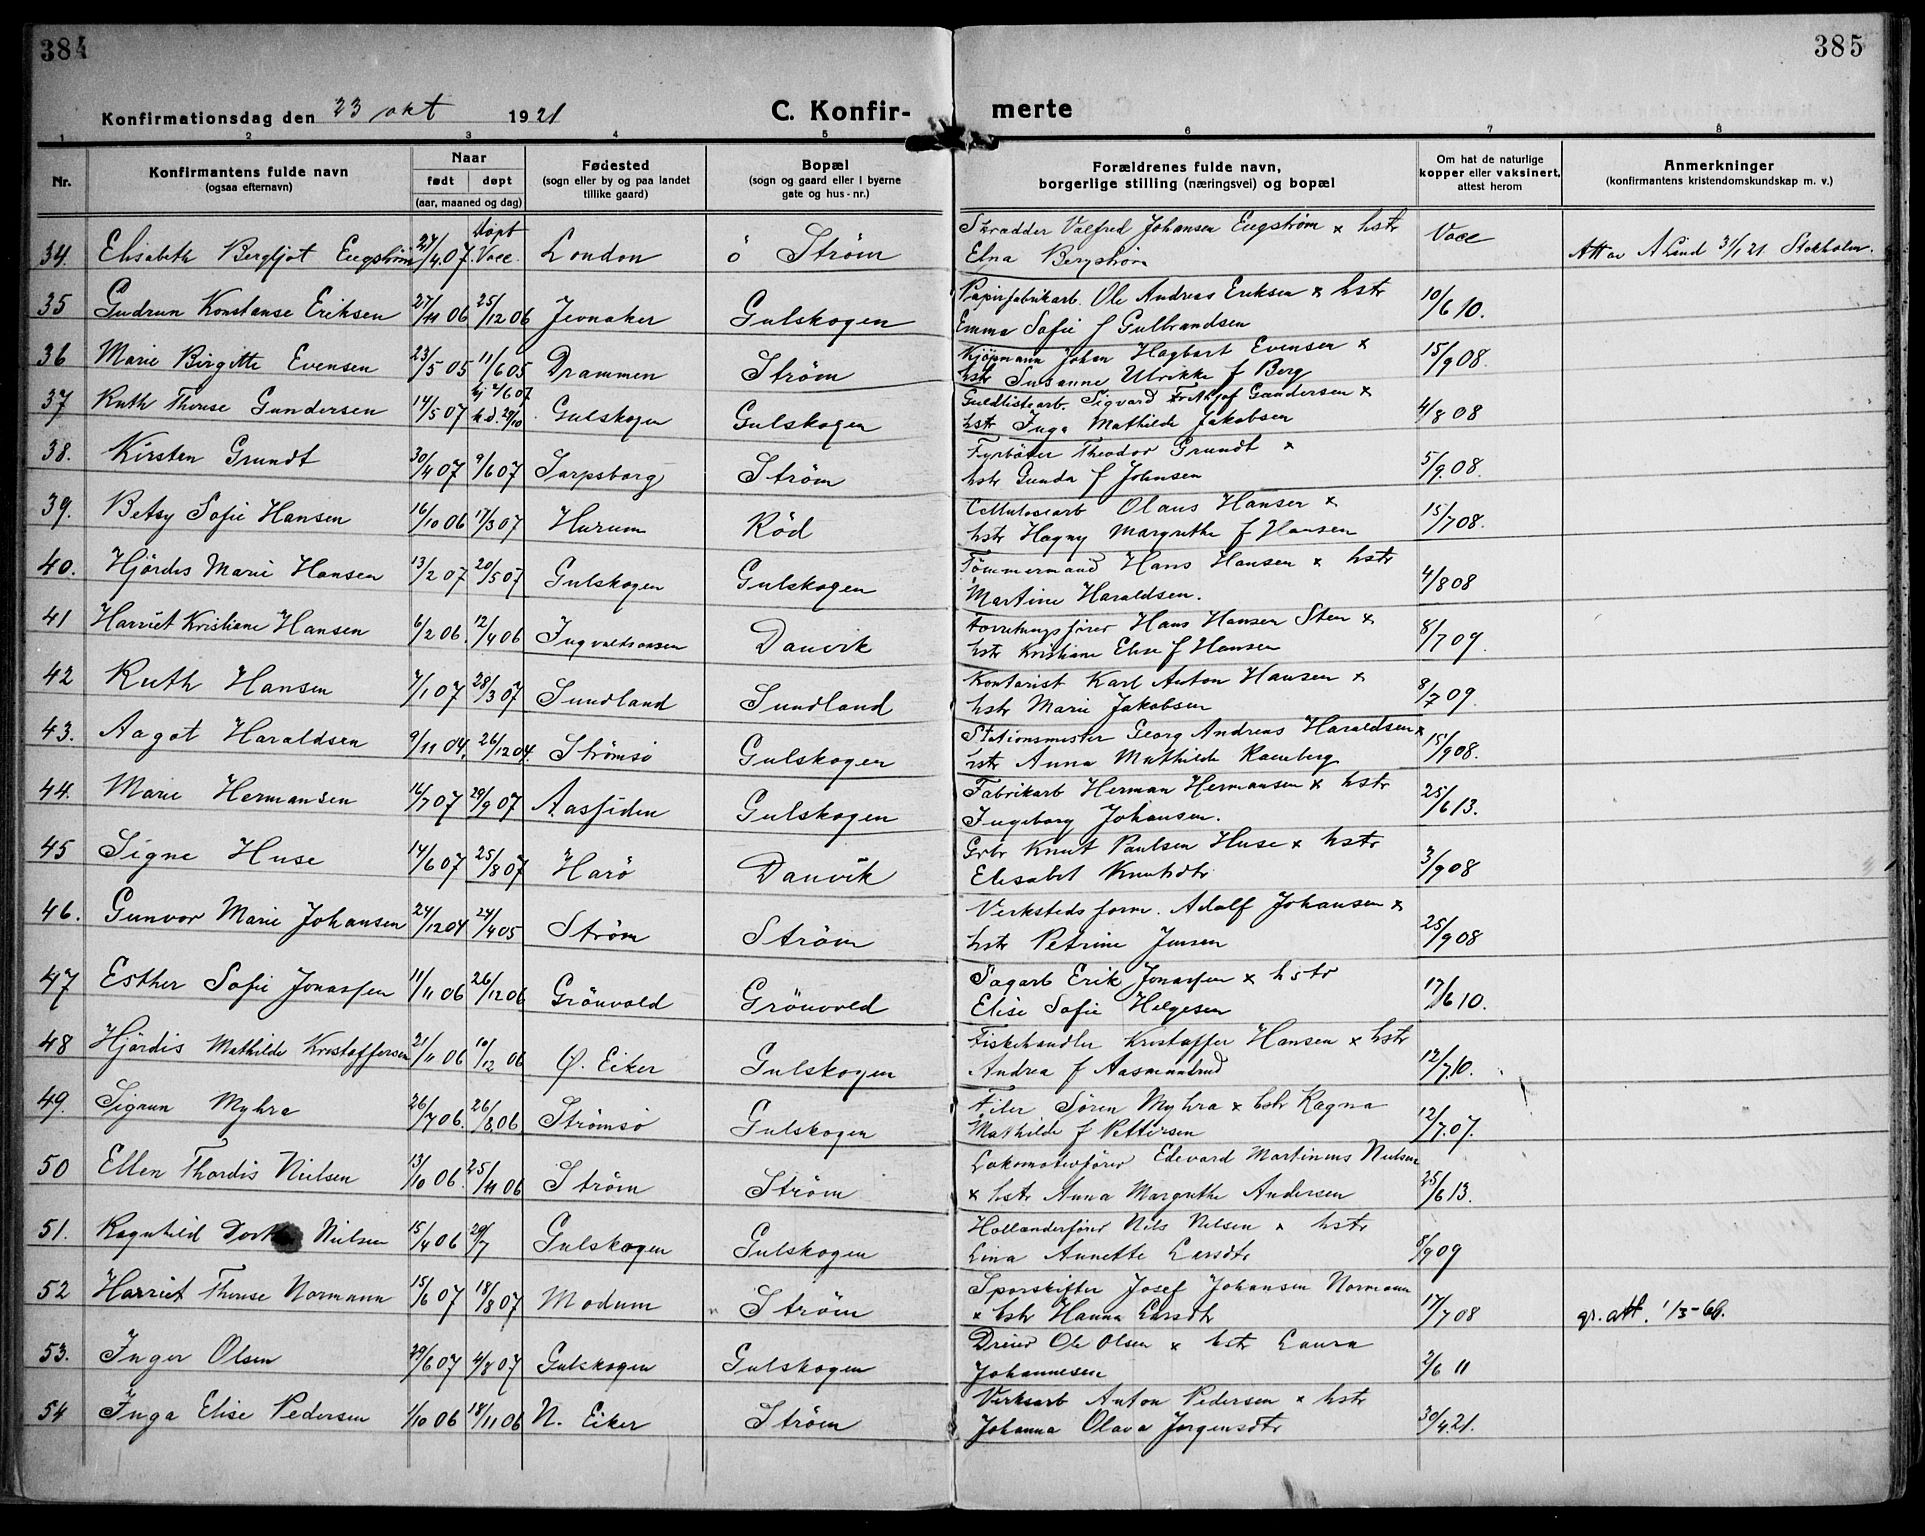 384
385
Konfirmationsdag den 23 okt 1921
C. Konfir-
merte
1 2 3 4 5 6 7 8
Nr.
Konfirmantens fulde navn
(ogsaa efternavn)
Naar
født
døpt
(aar, maaned og dag)
Fødested
(sogn eller by og paa landet
tillike gaard)
Bopæl
(sogn og gaard eller i byerne
gate og hus-nr.)
Forældrenes fulde navn,
borgerlige stilling (næringsvei) og bopæl
Om hat de naturlige
kopper eller vaksinert,
attest herom
Anmerkninger
(konfirmantens kristendomskundskap m. v.)
Skrædder Valfred Johansen Engstrøm x hstr
34. Elisabeth Bergljot Engstrøm 27/4 07. døpt Vacc. London ö Strøm Elna Bergstrøm Vacc Att av 31/1 21 Stokholm.
Papirfabrikarb. Ole Andreas Eriksen x hstr
35 Gudrun Konstanse Eriksen 27/11 06 25/12 06 Jevnaker Gulskogen Emma Sofie f Gulbrandsen 10/6 10.
Kjøpmann Johan Hagbart Evensen x
36 Marie Birgitte Evensen 23/5 05 11/6 05 Drammen Strøm hstr Susanne Ulrikke f Berg 15/9 08.
Guldlistearb. Sigvard Frithjof Gundersen x
37 Ruth Therese Gundersen 14/5 07 hj 2/6 07 k.d. 29/10. Gulskogen Gulskogen hstr Inga Mathilde Jakobsen 4/8 08
Fyrbøter Theodor Grundt x
38. Kirsten Grundt 30/4 07 9/6 07 Sarpsborg Strøm hstr Gunda f Johnsen 5/9. 08.
Cellulosearb Olaus Hansen x
39. Betsy Sofie Hansen 16/10 06 17/3 07 Hurum Röd hstr Hagny Margrethe f Hansen 15/7 08.
Tömmermand Hans Hansen x hstr
40. Hjördis Marie Hansen 13/2 07 20/5 07 Gulskogen Gulskogen Martine Haraldsen. 4/8 08
Forretningsfører Hans Hansen Steen x
41 Harriet Kristiane Hansen 6/2 06. 12/4 06 Ingvaldsaasen Danvik hstr Kristiane Elise f Hansen 8/7 09.
Kontorist Karl Anton Hansen x
42 Ruth Hansen 7/1 07 28/3 07 Sundland Sundland hstr Marie Jakobsen 8/7 09.
Stationsmester Georg Andreas Haraldsen x
43. Aagot Haraldsen 9/11 04. 26/12 04. Strømsö Gulskogen hstr Anna Mathilde Ramberg 15/9 08.
Fabrikarb Herman Hermansen x hstr
44. Marie Hermansen 16/7 07 29/9 07 Aassiden Gulskogen Ingeborg Johansen. 25/6 13.
Grbr Knut Paulsen Huse x hstr
45 Signe Huse 14/6 07 25/8 07 Harö Danvik Elisabet Knutsdtr 3/9 08
Verkstedsform. Adolf Johansen x
46. Gunvor Marie Johansen 24/12 04 24/4 05 Strøm Strøm hstr Petrine Jensen 25/9 08
Sagarb Erik Jonassen x hstr
47 Esther Sofie Jonassen 11/11 06 26/12 06 Grönvold Grönvold Elise Sofie Helgesen 17/6 10.
Fiskehandler Kristoffer Hansen x hstr
48 Hjördis Mathilde Kristoffersen 21/11 06 10/12 06 Ø. Eiker Gulskogen Andrea f Aasmundrud 12/7 10.
Filer Sören Myhra x hstr Ragna
49. Sigrun Myhre 26/7 06. 26/8 06 Strömsö Gulskogen Mathilde f Pettersen 12/7. 07.
Lokomotivfører Edevard Martinius Nielsen
50 Ellen Thordis Nielsen 13/10 06. 25/11 06 Strøm Strøm x hstr Anna Margrethe Andersen 25/6 13.
Hollænderfører Nils Nilsen x hstr
51. Ragnhild Nielsen 15/4 06 29/7 Gulskogen Gulskogen Lina Annette Larsdtr 8/9 09
Sporskifter Josef Johansen Normann
52 Harriet Therese Normann 15/6 07 18/8 07 Modum " Strøm x hstr Hanna Larsdtr 17/7 08 gr. att. 1/3-66.
Dreier Ole Olsen x hstr Laura
53. Inger Olsen 29/6 07 4/8 07 Gulskogen Gulskogen Johannesen 2/6 11
Verksarb Anton Pedersen x hstr
54 Inga Elise Pedersen 1/10 06 18/11 06 N. Eiker Strøm Johanna Olava Jørgensdtr 30/4. 21.